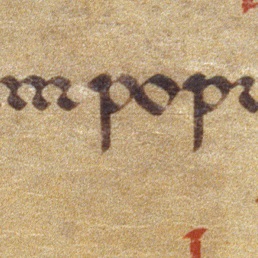 m popu